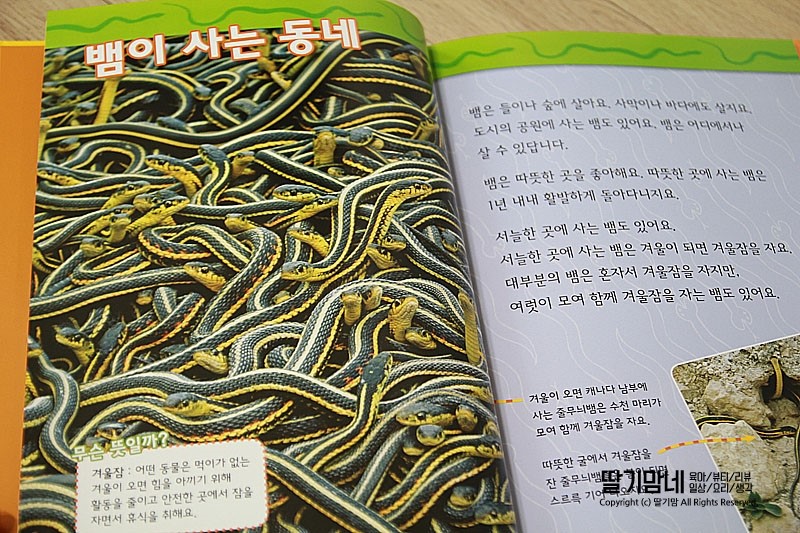 뱀이 사는 동네
무슨 뜻일까?
겨울잠 : 어떤 동물은 먹이가 없는
겨울이 오면 힘을 아끼기 위해
활동을 줄이고 안전한 곳에서 잠을
자면서 휴식을 취해요.
뱀은 들이나 숲에 살아요. 사막이나 바다에도 살지요.
도시의 공원에 사는 뱀도 있어요. 뱀은 어디에서나
살 수 있답니다.
뱀은 따뜻한 곳을 좋아해요. 따뜻한 곳에 사는 뱀은
1년 내내 활발하게 돌아다니지요.
서늘한 곳에 사는 뱀도 있어요.
서늘한 곳에 사는 뱀은 겨울이 되면 겨울잠을 자요.
대부분의 뱀은 혼자서 겨울잠을 자지만,
여럿이 모여 함께 겨울잠을 자는 뱀도 있어요.
겨울이 오면 캐나다 남부에
사는 줄무늬뱀은 수천 마리가
모여 함께 겨울잠을 자요.
따뜻한 굴에서 겨울잠을
잔 줄무늬뱀
스르륵
딸기맘네 육아/뷰티/리뷰
일상/요리/생각
Copyright (c) 딸기맘 All Rights Reserved